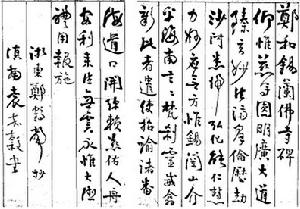 鄭和錫蘭佛寺碑
仰惟慈尊圓明廣大道
臻玄妙法濟群倫歷劫
沙河悉歸弘化能仁慧
力妙應無方惟錫蘭山介
乎海南言言梵剎靈感翕
彰比者遣使詔諭諸番
海道口開深賴慈佑人舟
安利來往無虞永惟大德
禮用報施
浙東鄭鶴聲抄
滇南袁嘉穀